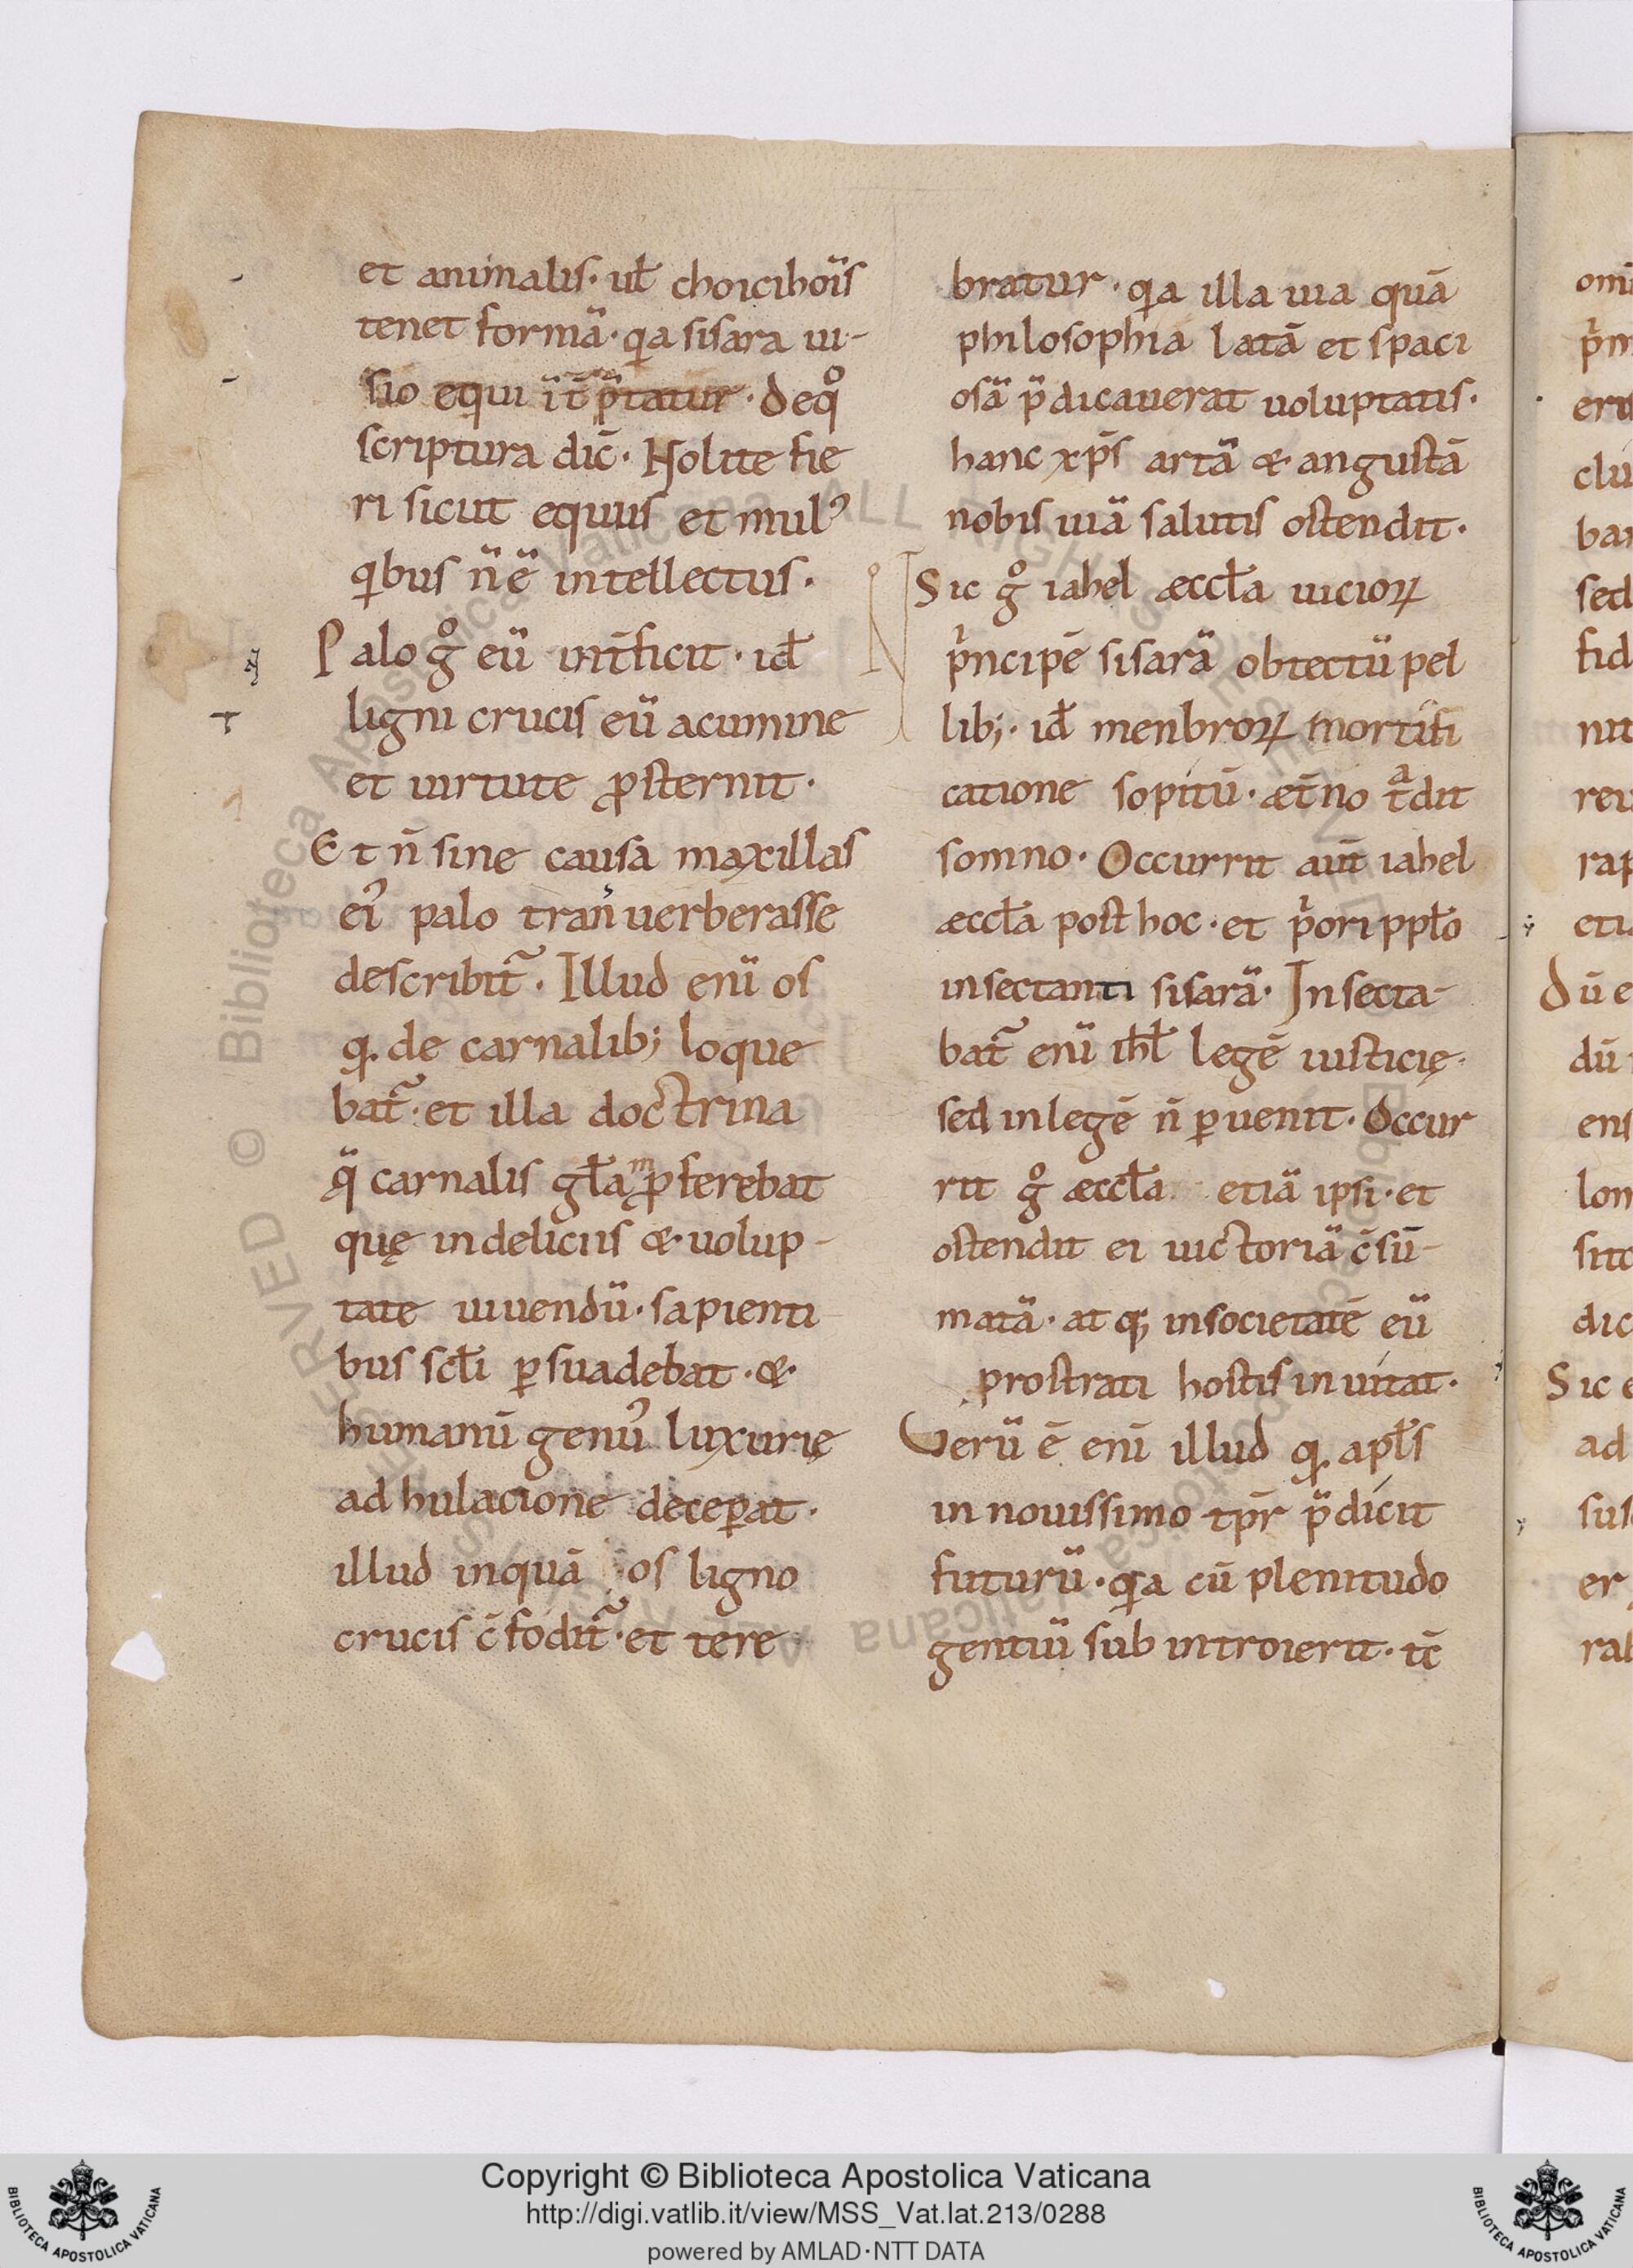 et animalis· ul̄ choicihoīs
tenet formā· qia sisara ui-
sio equi īt̄ p̄tatur· deq°
scriptura dic̄· Nolite fie
ri sicut equus et mulꝰ
qibus n̄ ē intellectus·
Palo g° eū int̄ficit· id̄
ligni crucis eū acumine
et uirtute ꝓsternit·
Et n̄ sine causa maxillas
eiꝰ palo tranſuerberasse
describit᷑· Illud enī os
q̣ de carnalib; loque
bat᷑· et illa doctrina
q̄ carnalis gl̄am ꝓferebat
quę in deliciis & uolup-
tate uiuendū· sapienti
bus scl̄i ꝑsuadebat· &
humanū genuꝰ luxurię
adhulacione deceꝑat·
illud inquā os ligno
crucis c̄fodit᷑· et tere
bratur· qia illa uia quā
philosophia latā et spaci
osā p̄dicauerat uoluptatis·
hanc xp̄s artā & angustā
nobis uiā salutis ostendit·
Sic g° iahel æccl̄a uicioꝝ
pⁱncipē sisarā obtectū pel
lib;· id̄ menbroꝝ mortifi
catione sopitū· æt̄no tᵃdit
somno· Occurrit aut̄ iahel
æccl̄a post hoc· et pⁱori ppl̄o
insectanti sisarā· Insecta-
bat᷑ enī ihl̄ legē iusticię·
sed in legē n̄ ꝑuenit· Occur
rit g° æccl̄a etiā ipsi· et
ostendit ei uictoriā c̄sū-
matā· at q; in societatē eū
prostrati hostis inuitat·
Uerū ē enī illud q̣ apl̄s
in nouissimo tp̄r p̄dicit
futurū· qia cū plenitudo
gentiū sub introierit· tc̄
Copyright © Biblioteca Apostolica Vaticana
http://digi.vatlib.it/view/MSS_Vat.lat.213/0288
powered by AMLAD·NTT DATA
BIBLIOTECA APOSTOLICA VATICANA
BIBLIOTECA APOSTOLICA VATICANA